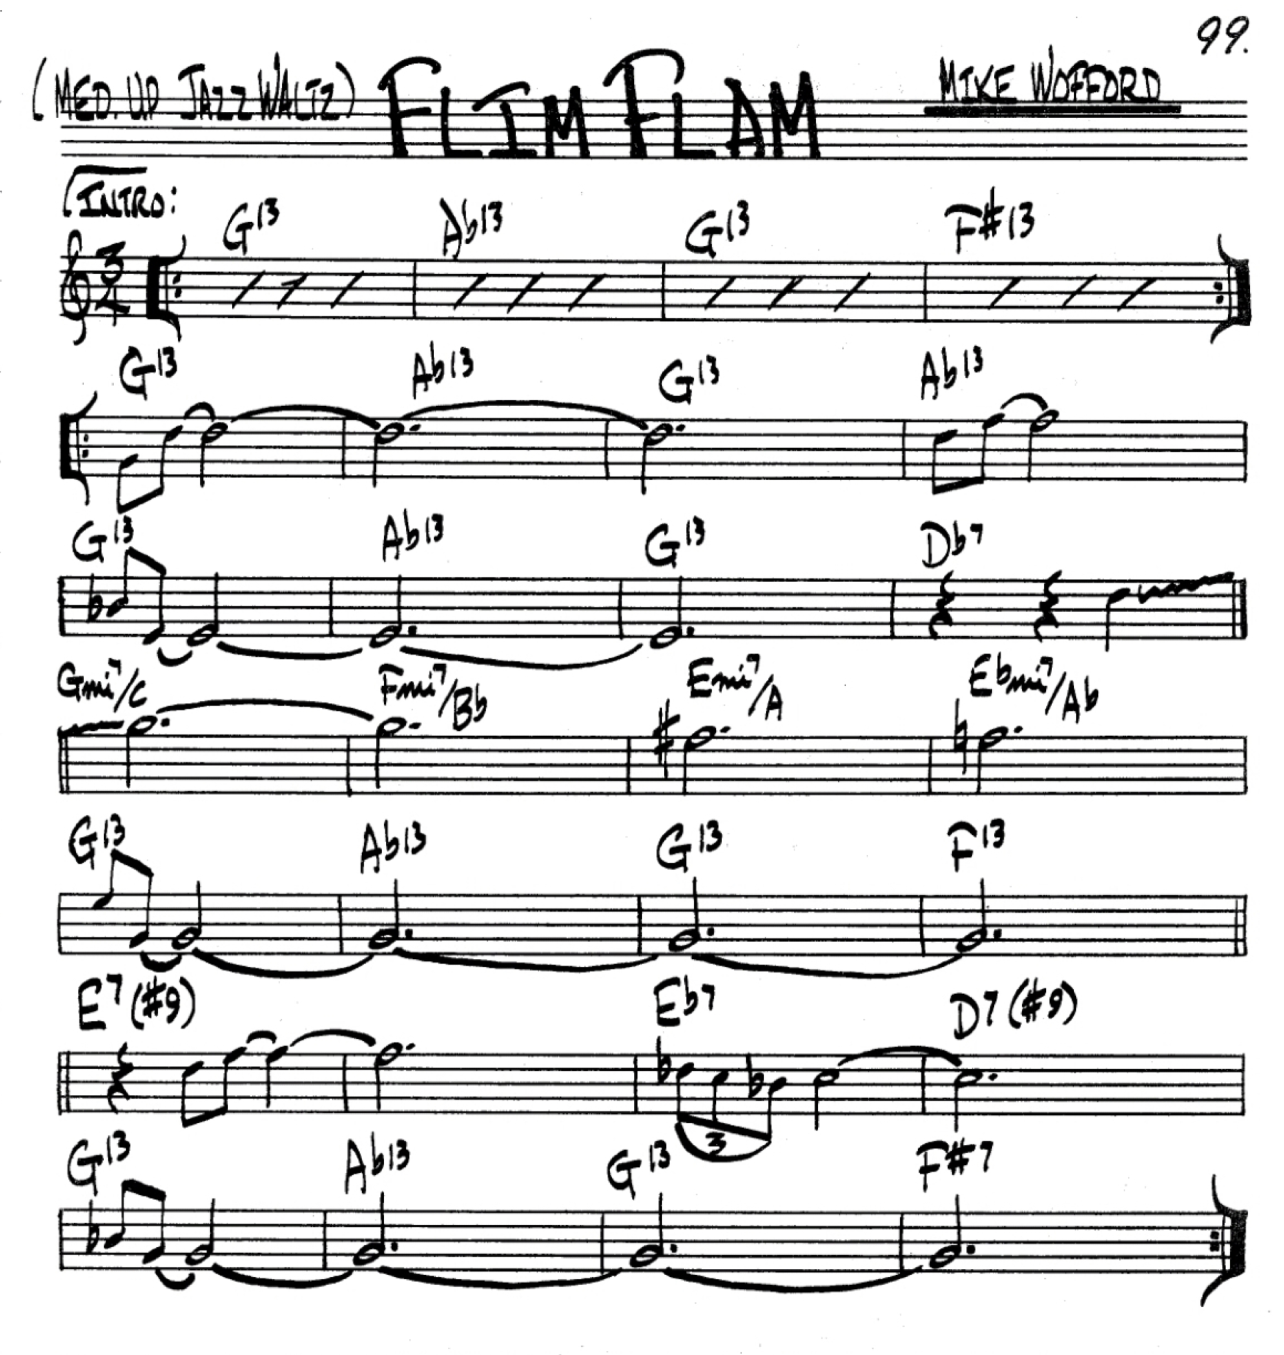 99.
(MED. UP JAZZ WALTZ) FLIM FLAM MIKE WOFFORD
INTRO:
G13 Ab13 G13 F#13
3/4
G13 Ab13 G13 Ab13
G13 Ab13 G13 Db7
Gmi7/C Fmi7/Bb Emi7/A Ebmi7/Ab
G13 Ab13 G13 F13
E7(#9) Eb7 D7(#9)
3
G13 Ab13 G13 F#7